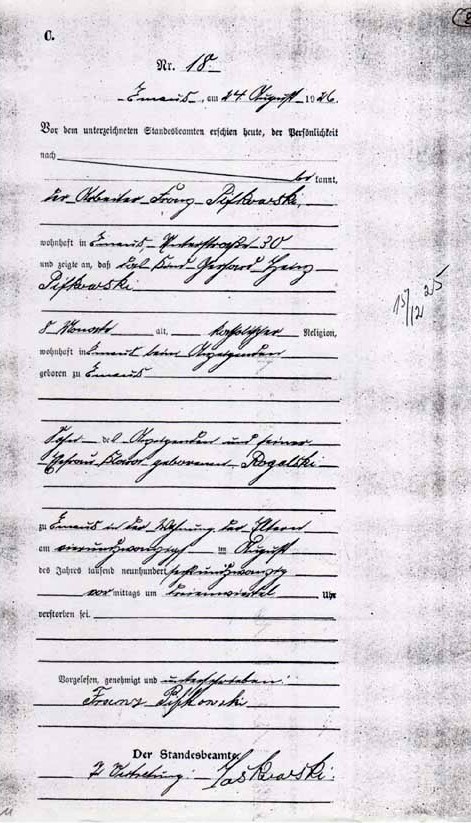 C.
Nr. 18
Emaus, am 24 August 1926.
Vor dem unterzeichneten Standesbeamten erschien heute, der Persönlichkeit
nach be kannt,
der Arbeiter Franz
wohnhaft in Emaus Unterstraße 30
und zeigte an, daß das Kind Gerhard Heinz
8 Monate alt, katholischer Religion,
wohnhaft in Emaus beim Anzeigenden
geboren zu Emaus
15/12 25
Sohn des Anzeigenden und seiner
Ehefrau Klara geborenen Rogalski
zu Emaus in der Wohnung der Eltern
am vierundzwanzig im August
des Jahres tausend neunhundert sechsundzwanzig
vor mittags um Uhr
verstorben sei.
Vorgelesen, genehmigt und unterschrieben:
Franz
Der Standesbeamte.
In Vertretung: